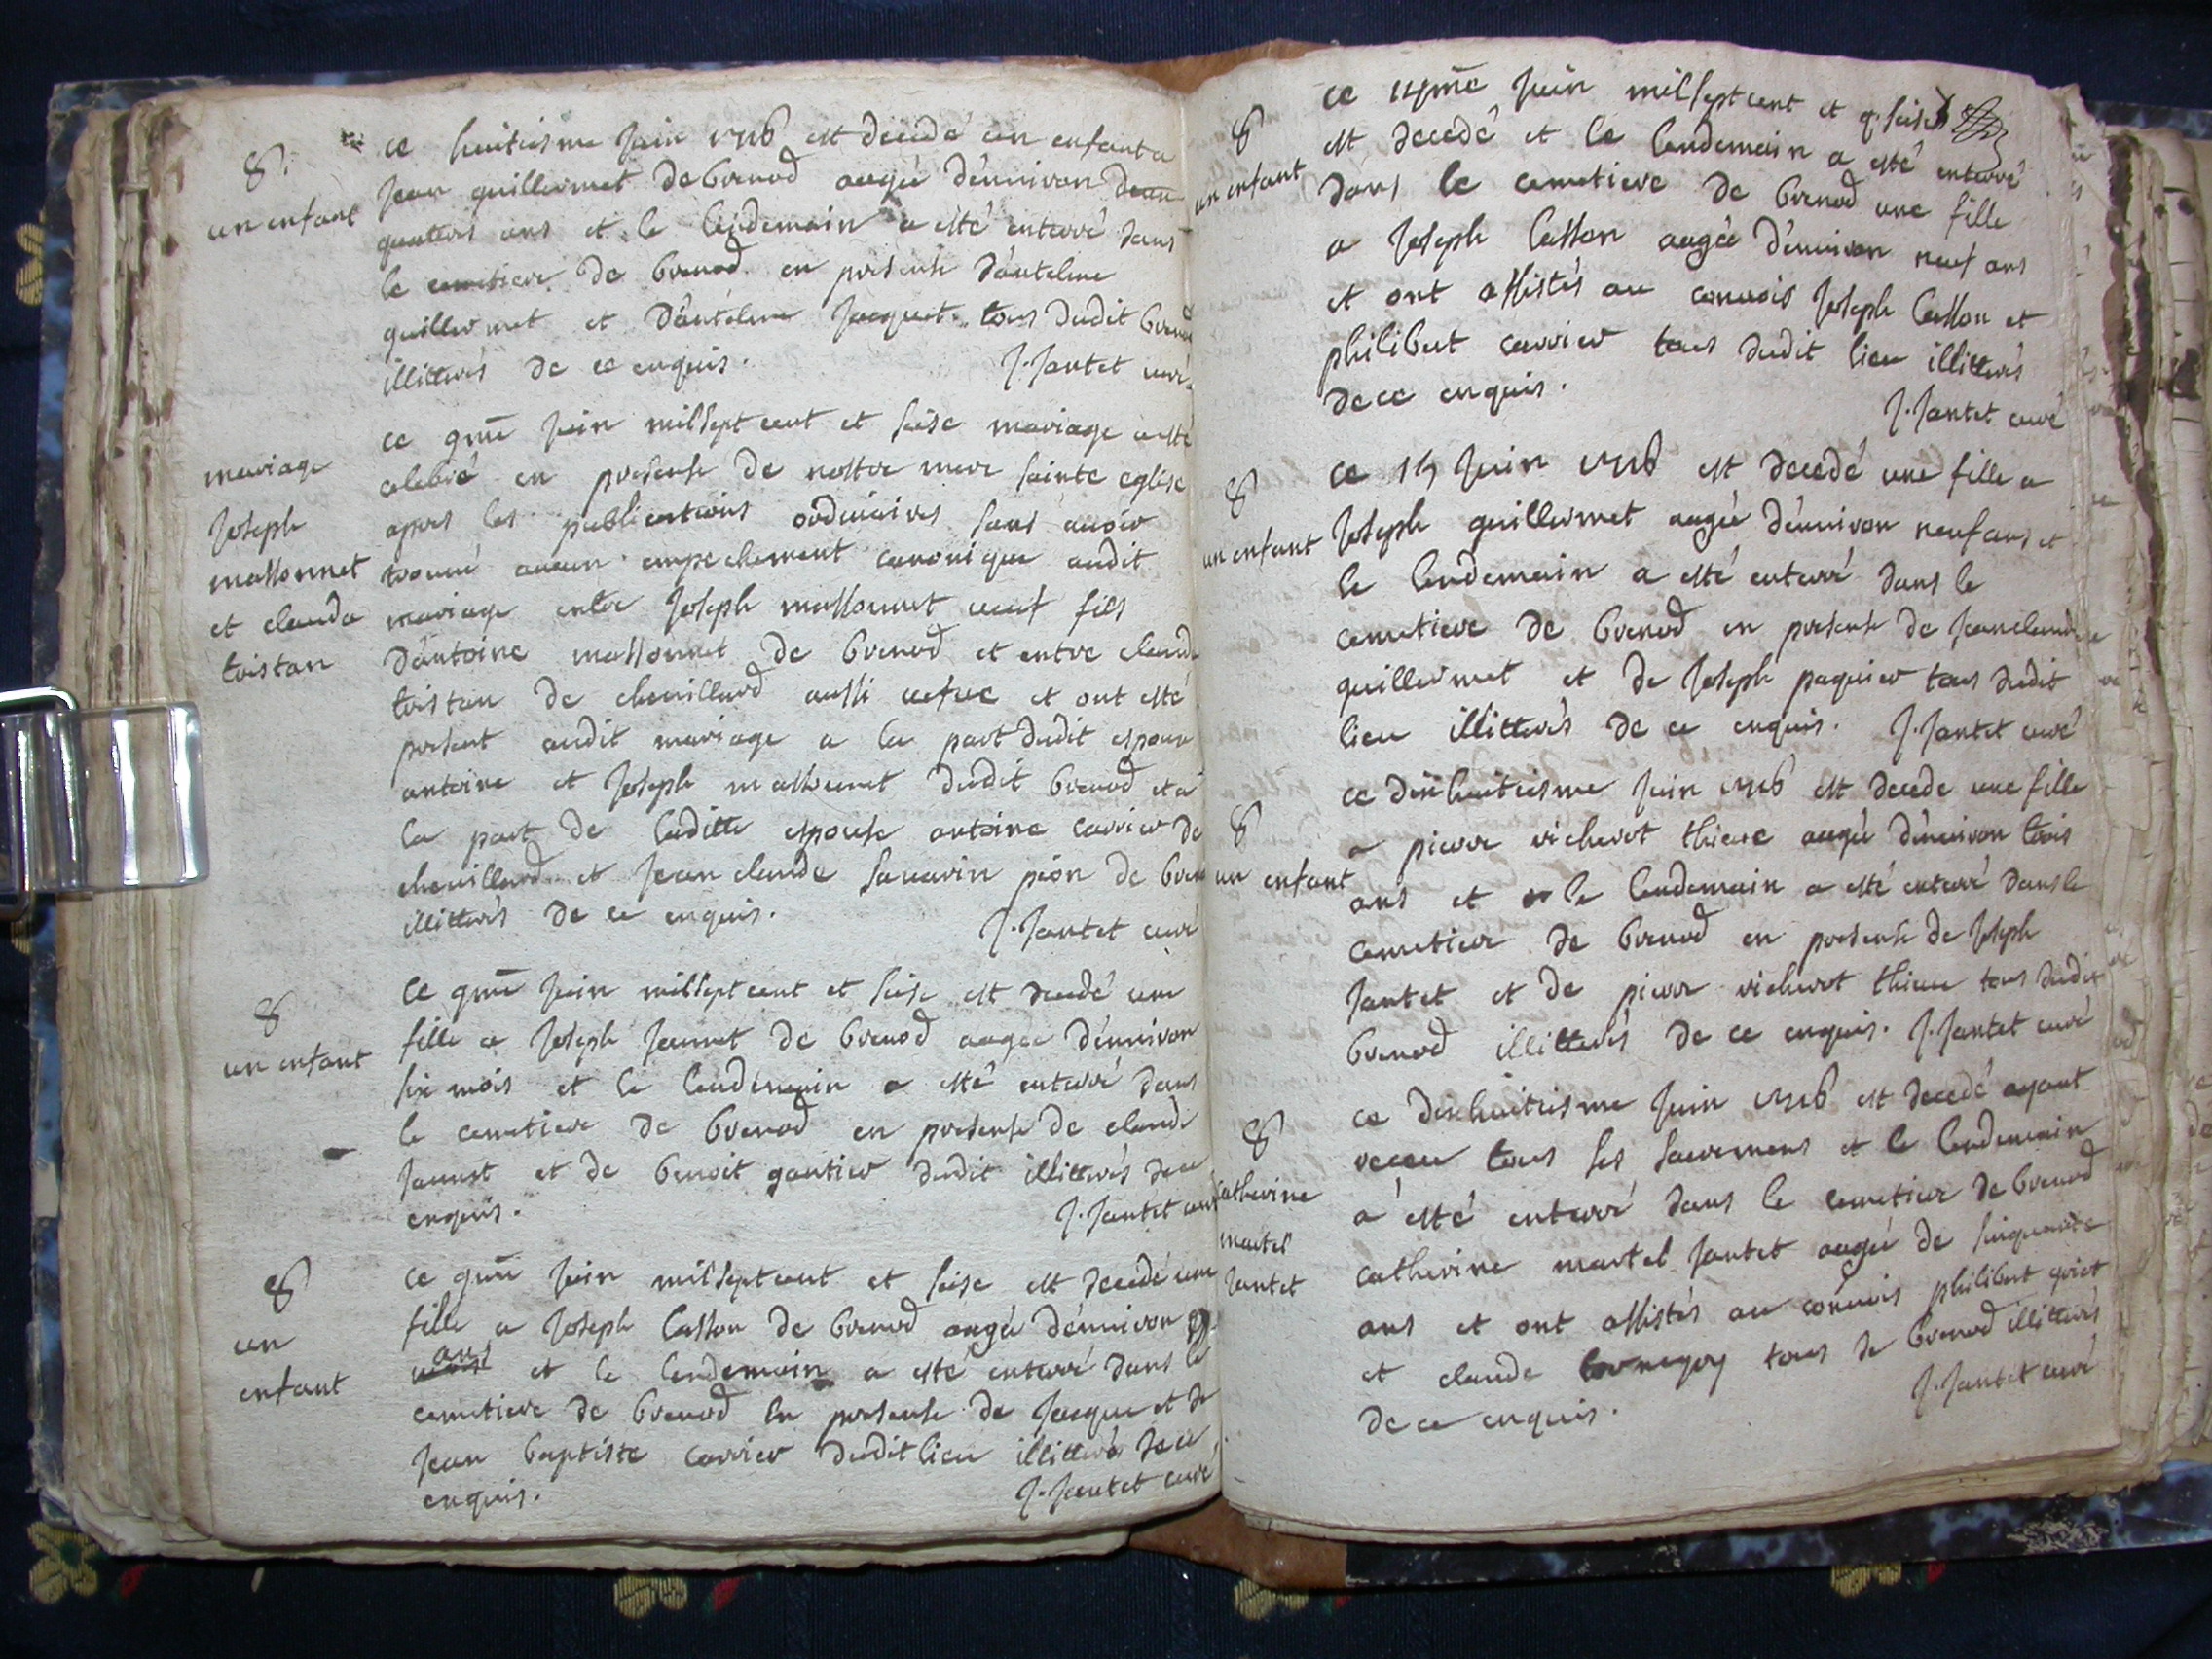 8.
un enfant
ce huitiesme juin 1716 est decedé un enfant a
jean guillermet de brenod aagé d'environ
quatres ans et le lendemain a esté enterré dans
le cemetiere de brenod en presense d'anteline
guillermet et d'anteline jacquet tous dudit brenod
illitterés de ce enquis.
J. Jantet curé
mariage
joseph
massonnet
et clauda
tristan
ce 9me juin mil sept cent et seise mariage a esté
celebré en presense de nostre mere sainte eglise
apres les publications ordinaires sans avoir
trouvé aucun empechement canonique audit
mariage entre joseph massonnet veuf fils
d'antoine massonnet de brenod et entre clauda
tristan de chevillard aussi vefve et ont esté
present audit mariage a la part dudit espoux
antoine et joseph massonnet dudit brenod et a
la part de laditte espouse antoine carrier de
chevillard et jean claude savarin pion de brenod
illitterés de ce enquis.
J. Jantet curé
8
un enfant
ce 9me juin mil sept cent et seise est decedé une
fille a joseph jannet de brenod aagee d'environ
six mois et le lendemain a esté enterré dans
le cemetiere de brenod en presense de claude
jannet et de benoit gautier dudit illitterés de ce
enquis.
J. Jantet curé
8
un
enfant
ce 9me juin mil sept cent et seise est decedé une
fille a joseph Casson de brenod aagée d'environ 9
ans et le lendemain a esté enterré dans le
cemetiere de brenod en presense de jacque et de
jean baptiste carrier dudit lieu illitteré de ce
enquis.
J. Jantet curé
8
un enfant
ce 14me juin mil sept cent et seise
est decedé et le lendemain a esté enterré
dans le cemetiere de brenod une fille
a joseph Casson aagée d'environ neuf ans
et ont assistés au convois joseph Casson et
philibert carrier tous dudit lieu illitterés
de ce enquis.
J. Jantet curé
8
un enfant
ce 15 juin 1716 est decedé une fille a
joseph guillermet aagée d'environ neuf ans et
le lendemain a esté enterré dans le
cemetiere de brenod en presense de jean claude
guillermet et de joseph paquier tous dudit
lieu illitterés de ce enquis. J. Jantet curé
8
un enfant
ce dixhuitiesme juin 1716 est decede une fille
a pierre richerot thieue aagée d'environ trois
ans et le lendemain a esté enterré dans le
cemetiere de brenod en presense de joseph
jantet et de pierre richerot thieue tous dudit
brenod illitterés de ce enquis. J. Jantet curé
8
Catherine
martel
jantet
ce dixhuitiesme juin 1716 est decedé ayant
receu tous ses sacremens et le lendemain
a esté enterré dans le cemetiere de brenod
catherine martel jantet aagée de sinquante
ans et ont assistés au convois philibert
et claude tous de brenod illitterés
de ce enquis.
J. Jantet curé